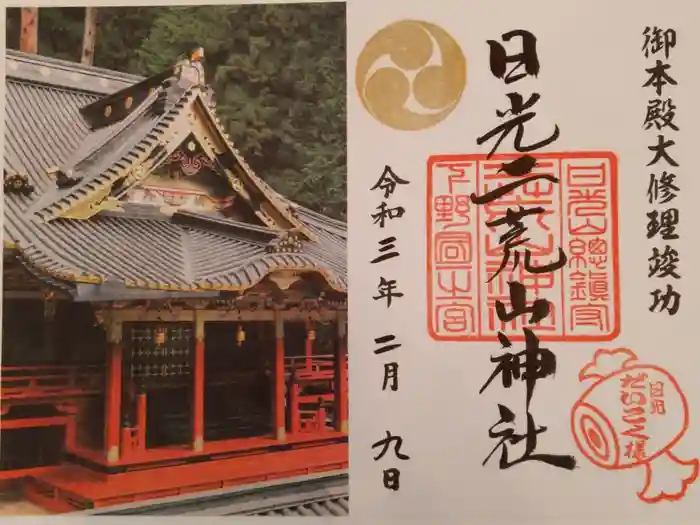 御本殿大修理竣功
日光二荒山神社
日光山總鎮守
二荒山神社
下野國一之宮
令和三年二月九日
日光
だいこく様